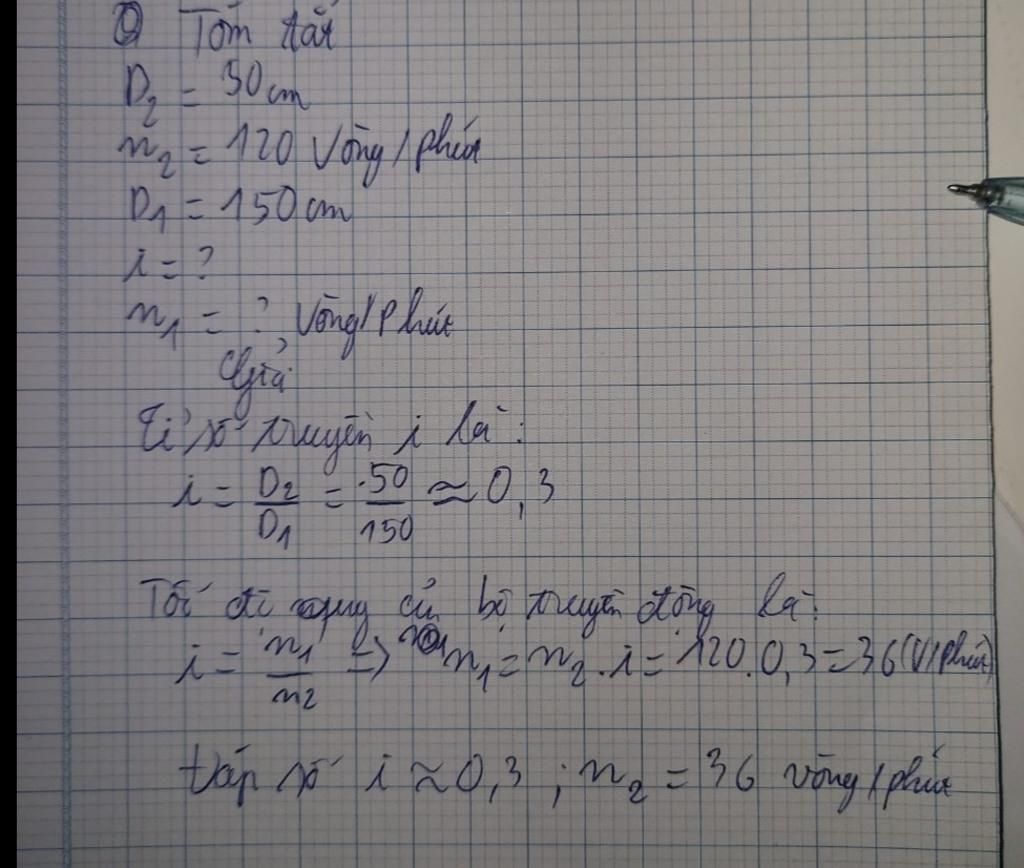 Tóm tắt
D₂ = 30 cm
n₂ = 120 vòng / phút
D₁ = 150 cm
i = ?
n₁ = ? vòng / phút
Giải
Tỉ số truyền i là :
i = D₂/D₁ = 50/150 ≈ 0,3
Tốc độ quay của bộ truyền động là :
i = n₁/n₂ => n₁ = n₂ . i = 120 . 0,3 = 36 (V/phút)
Đáp số i ≈ 0,3 ; n₂ = 36 vòng / phút